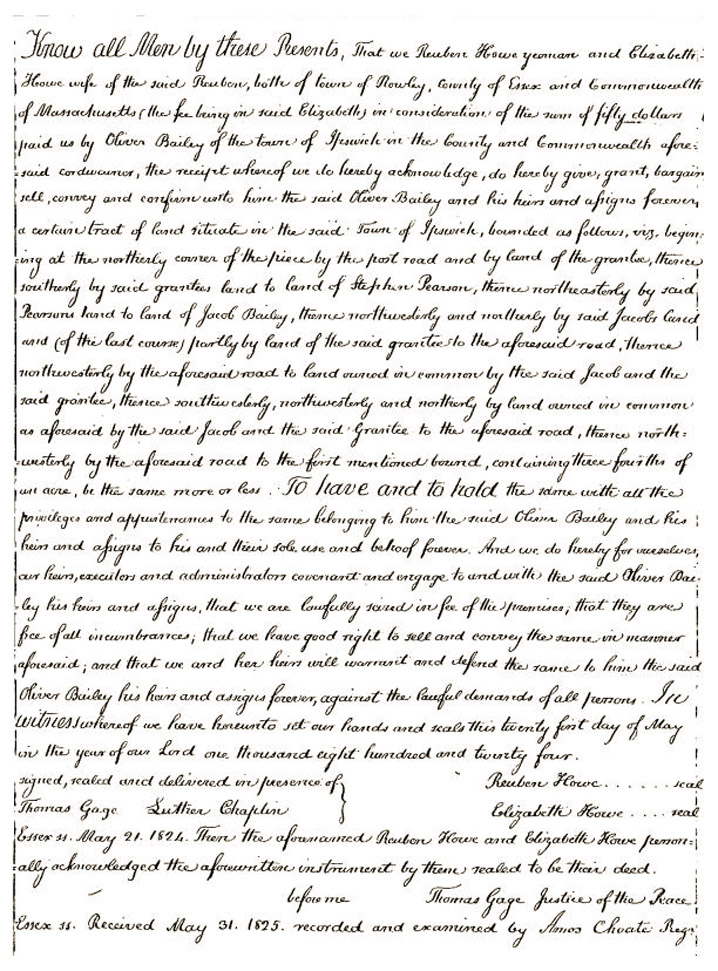 Know all Men by these Presents, That we Reuben Howe yeoman and Elizabeth
Howe wife of the said Reuben, both of town of Rowley, County of Essex and Commonwealth
of Massachusetts (the fee being in said Elizabeth) in consideration of the sum of fifty dollars
paid us by Oliver Bailey of the town of Ipswich in the County and Commonwealth afore=
=said cordwainer, the receipt whereof we do hereby acknowledge, do hereby give, grant, bargain
sell, convey and confirm unto him the said Oliver Bailey and his heirs and assigns forever,
a certain tract of land situate in the said Town of Ipswich, bounded as follows, viz. begin=
=ing at the northerly corner of the piece by the post road and by land of the grantee, thence
southerly by said grantees land to land of Stephen Pearson, thence northeasterly by said
Pearsons land to land of Jacob Bailey, thence northwesterly and northerly by said Jacobs land
and (of the last course) partly by land of the said grantee to the aforesaid road, thence
northwesterly by the aforesaid road to land owned in common by the said Jacob and the
said grantee, thence southwesterly, northwesterly and northerly by land owned in common
as aforesaid by the said Jacob and the said Grantee to the aforesaid road, thence north=
=westerly by the aforesaid road to the first mentioned bound, containing three fourths of
an acre, be the same more or less. To have and to hold the same with all the
privileges and appurtenances to the same belonging to him the said Oliver Bailey and his
heirs and assigns to his and their sole use and behoof forever. And we do hereby for ourselves,
our heirs, executors and administrators covenant and engage to and with the said Oliver Bai=
=ley his heirs and assigns, that we are lawfully seized in fee of the premises; that they are
free of all incumbrances; that we have good right to sell and convey the same in manner
aforesaid; and that we and her heirs will warrant and defend the same to him the said
Oliver Bailey his heirs and assigns forever, against the lawful demands of all persons. In
witness whereof we have hereunto set our hands and seals this twenty first day of May
in the year of our Lord one thousand eight hundred and twenty four.
signed, sealed and delivered in presence of } Reuben Howe ...... seal
Thomas Gage Luther Chaplin } Elizabeth Howe .... seal
Essex ss. May 21. 1824. Then the aforenamed Reuben Howe and Elizabeth Howe person=
=ally acknowledged the aforewritten instrument by them sealed to be their deed.
before me Thomas Gage Justice of the Peace
Essex ss. Received May 31. 1825. recorded and examined by Amos Choate Regr